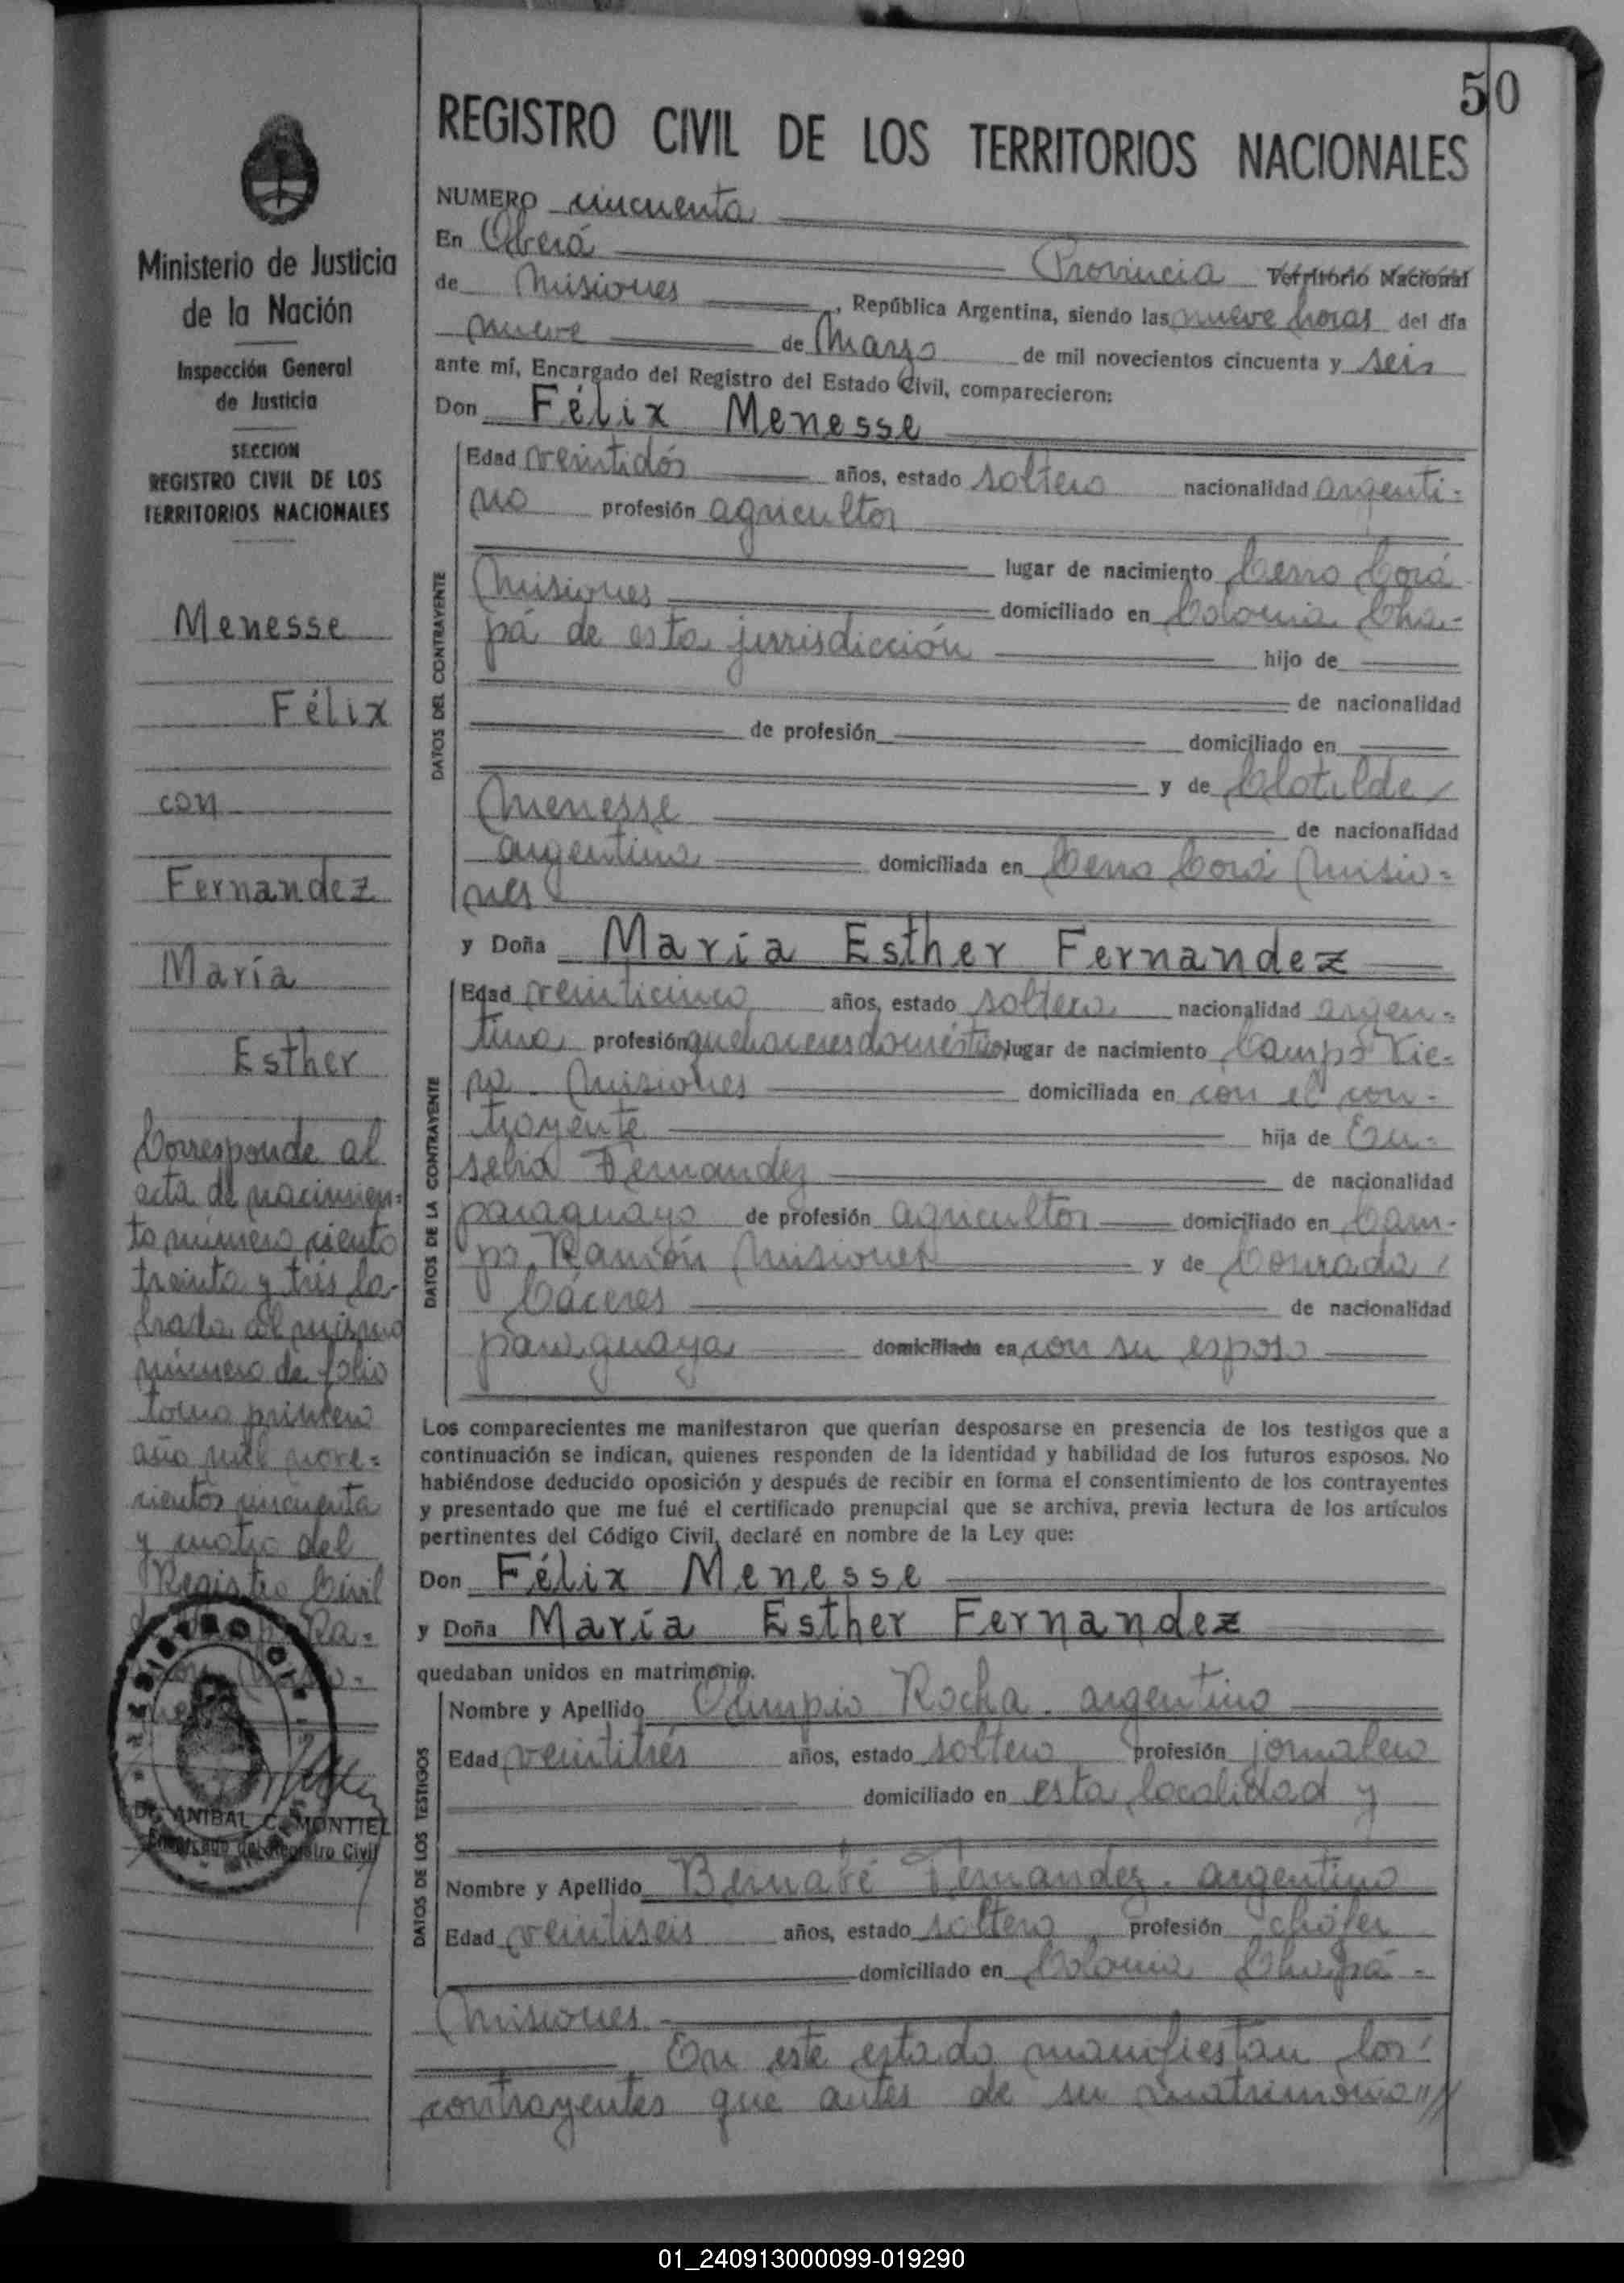 50
REGISTRO CIVIL DE LOS TERRITORIOS NACIONALES
Ministerio de Justicia
de la Nación
Inspección General
de Justicia
SECCION
REGISTRO CIVIL DE LOS
TERRITORIOS NACIONALES
Menesse
Félix
con
Fernandez
María
Esther
Corresponde al
acta de nacimien=
to número ciento
treinta y tres la-
brada al mismo
número de folio
tomo primero
año mil nove=
cientos cincuenta
y cuatro del
Registro Civil
Ra=
Dr. ANIBAL C. MONTIEL
Encargado del Registro Civil
NUMERO cincuenta
En Oberá Provincia Territorio Nacional
de Misiones, República Argentina, siendo las nueve horas del día
nueve de Marzo de mil novecientos cincuenta y seis
ante mí, Encargado del Registro del Estado Civil, comparecieron:
Don Félix Menesse
DATOS DEL CONTRAYENTE
Edad veintidós años, estado soltero nacionalidad argenti=
no profesión agricultor
lugar de nacimiento Cerro Corá
Misiones domiciliado en Colonia Cha=
pá de esta jurisdicción hijo de
de nacionalidad
de profesión domiciliado en
y de Clotilde
Menesse de nacionalidad
argentina domiciliada en Cerro Corá Misio=
nes
y Doña María Esther Fernandez
DATOS DE LA CONTRAYENTE
Edad veinticinco años, estado soltera nacionalidad argen=
tina profesión quehaceres domésticos lugar de nacimiento Campo Vie=
ra Misiones domiciliada en con el con=
trayente hija de Eu=
sebio Fernandez de nacionalidad
paraguayo de profesión agricultor domiciliado en Cam-
po Ramón Misiones y de Conrada
Cáceres de nacionalidad
paraguaya domiciliada en con su esposo
Los comparecientes me manifestaron que querían desposarse en presencia de los testigos que a
continuación se indican, quienes responden de la identidad y habilidad de los futuros esposos. No
habiéndose deducido oposición y después de recibir en forma el consentimiento de los contrayentes
y presentado que me fué el certificado prenupcial que se archiva, previa lectura de los artículos
pertinentes del Código Civil, declaré en nombre de la Ley que:
Don Félix Menesse
y Doña María Esther Fernandez
quedaban unidos en matrimonio.
DATOS DE LOS TESTIGOS
Nombre y Apellido Olimpio Rocha. argentino
Edad veintitrés años, estado soltero profesión jornalero
domiciliado en esta localidad y
Nombre y Apellido Bernabé Fernandez. argentino
Edad veintiseis años, estado soltero, profesión chófer
domiciliado en Colonia Chapá -
Misiones
En este estado manifiestan los
contrayentes que antes de su matrimonio //
01_240913000099-019290